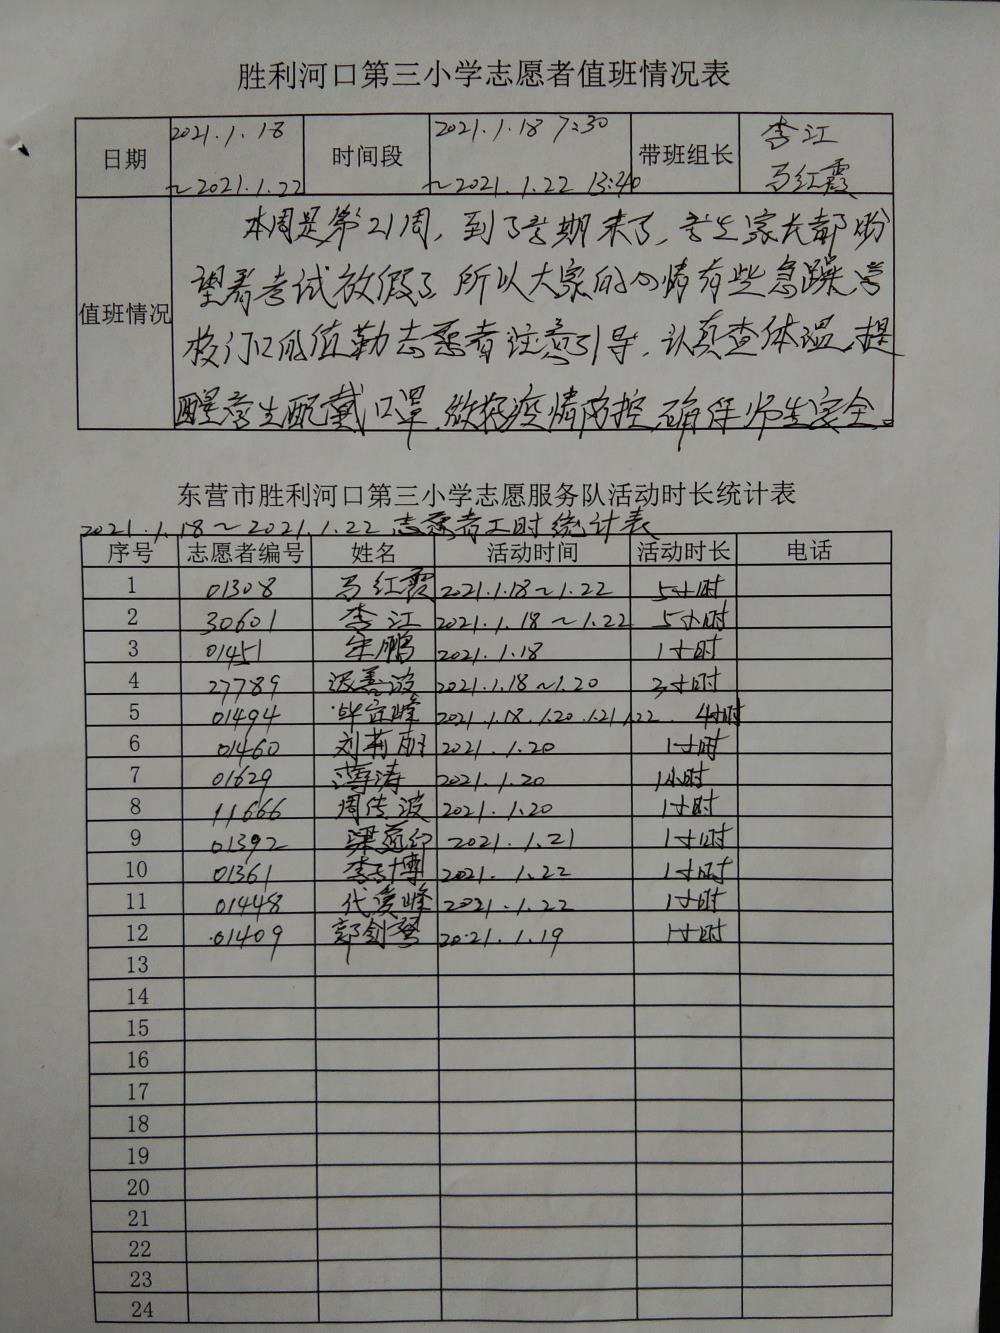 胜利河口第三小学志愿者值班情况表
日期 2021.1.18 ~2021.1.22 时间段 2021.1.18 7:30 ~2021.1.22 13:40 带班组长 李江 马红霞
值班情况
本周是第21周,到了学期末了,学生家长都盼
望着考试放假了 所以大家的心情有些急躁 学
校门口的值勤志愿者注意引导,认真查体温,提
醒学生配戴口罩,做好疫情防控,确保师生安全。
东营市胜利河口第三小学志愿服务队活动时长统计表
2021.1.18~2021.1.22志愿者工时统计表
序号 志愿者编号 姓名 活动时间 活动时长 电话
1 01308 马红霞 2021.1.18~1.22 5小时
2 30601 李江 2021.1.18~1.22 5小时
3 01451 朱鹏 2021.1.18 1小时
4 27789 2021.1.18~1.20 3小时
5 01494 2021.1.18.1.20.1.21.1.22. 4小时
6 01460 刘莉丽 2021.1.20 1小时
7 01629 薄涛 2021.1.20 1小时
8 11666 周传波 2021.1.20 1小时
9 01392 2021.1.21 1小时
10 01361 2021.1.22 1小时
11 01448 代俊峰 2021.1.22 1小时
12 01409 2021.1.19 1小时
13
14
15
16
17
18
19
20
21
22
23
24